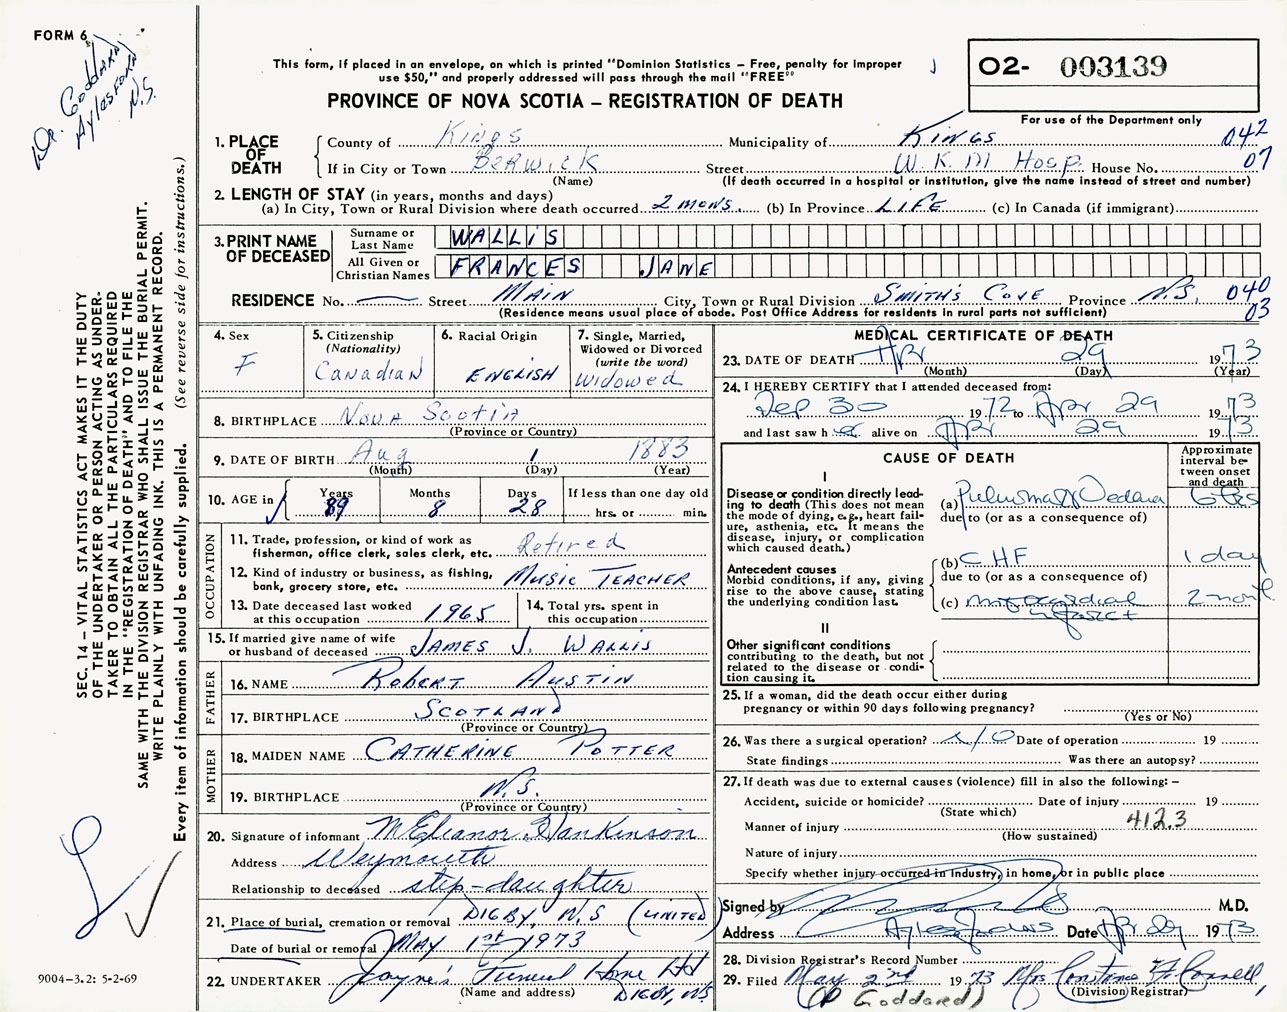 FORM 6
Dr. Goddard
Aylesford
N.S.
This form, if placed in an envelope, on which is printed "Dominion Statistics – Free, penalty for improper
use $50," and properly addressed will pass through the mail "FREE"
PROVINCE OF NOVA SCOTIA – REGISTRATION OF DEATH
O2- 003139
For use of the Department only
1. PLACE OF DEATH
County of Kings Municipality of Kings 042
If in City or Town Berwick Street W.K.M Hosp. House No. 07
(Name) (If death occurred in a hospital or institution, give the name instead of street and number)
2. LENGTH OF STAY (in years, months and days)
(a) In City, Town or Rural Division where death occurred 2 mons. (b) In Province LIFE (c) In Canada (if immigrant)
3. PRINT NAME OF DECEASED
Surname or Last Name WALLIS
All Given or Christian Names FRANCES JANE
RESIDENCE No. — Street Main City, Town or Rural Division Smith's Cove Province N.S. 040
(Residence means usual place of abode. Post Office Address for residents in rural parts not sufficient) 03
4. Sex
F
5. Citizenship
(Nationality)
Canadian
6. Racial Origin
ENGLISH
7. Single, Married,
Widowed or Divorced
(write the word)
Widowed
8. BIRTHPLACE Nova Scotia
(Province or Country)
9. DATE OF BIRTH Aug 1 1883
(Month) (Day) (Year)
10. AGE in
Years Months Days If less than one day old
89 8 28 hrs. or min.
OCCUPATION
11. Trade, profession, or kind of work as
fisherman, office clerk, sales clerk, etc. Retired
12. Kind of industry or business, as fishing,
bank, grocery store, etc. Music Teacher
13. Date deceased last worked
at this occupation 1965
14. Total yrs. spent in
this occupation
15. If married give name of wife
or husband of deceased James J. Wallis
FATHER
16. NAME Robert Austin
17. BIRTHPLACE Scotland
(Province or Country)
MOTHER
18. MAIDEN NAME Catherine Potter
19. BIRTHPLACE N.S.
(Province or Country)
20. Signature of informant M Eleanor Hankinson
Address Weymouth
Relationship to deceased step-daughter
21. Place of burial, cremation or removal DIGBY, N.S (UNITED)
Date of burial or removal May 1st 1973
22. UNDERTAKER Jayne's Funeral Home Ltd
(Name and address) DIGBY, NS
MEDICAL CERTIFICATE OF DEATH
23. DATE OF DEATH Apr 29 1973
(Month) (Day) (Year)
24. I HEREBY CERTIFY that I attended deceased from:
Sep 30 1972 to Apr 29 1973
and last saw her alive on Apr 29 1973
CAUSE OF DEATH
Approximate
interval be-
tween onset
and death
I
Disease or condition directly lead-
ing to death (This does not mean
the mode of dying, e.g., heart fail-
ure, asthenia, etc. It means the
disease, injury, or complication
which caused death.)
(a) Pulmonary Oedema 6 hrs
due to (or as a consequence of)
(b) CHF 1 day
Antecedent causes
Morbid conditions, if any, giving
rise to the above cause, stating
the underlying condition last.
due to (or as a consequence of)
(c) myocardial infarct 2 month
II
Other significant conditions
contributing to the death, but not
related to the disease or condi-
tion causing it.
25. If a woman, did the death occur either during
pregnancy or within 90 days following pregnancy?
(Yes or No)
26. Was there a surgical operation? No Date of operation 19
State findings Was there an autopsy?
27. If death was due to external causes (violence) fill in also the following: –
Accident, suicide or homicide? Date of injury 19
(State which)
Manner of injury 412.3
(How sustained)
Nature of injury
Specify whether injury occurred in industry, in home, or in public place
Signed by M.D.
Address Date Apr 29 1973
28. Division Registrar's Record Number
29. Filed May 2nd 1973 Mrs Constance F. Connell,
(Division) Registrar
(P Goddard)
SEC. 14 – VITAL STATISTICS ACT MAKES IT THE DUTY
OF THE UNDERTAKER OR PERSON ACTING AS UNDER-
TAKER TO OBTAIN ALL THE PARTICULARS REQUIRED
IN THE "REGISTRATION OF DEATH" AND TO FILE THE
SAME WITH THE DIVISION REGISTRAR WHO SHALL ISSUE THE BURIAL PERMIT.
WRITE PLAINLY WITH UNFADING INK. THIS IS A PERMANENT RECORD.
Every item of information should be carefully supplied. (See reverse side for instructions.)
9004-3.2: 5-2-69